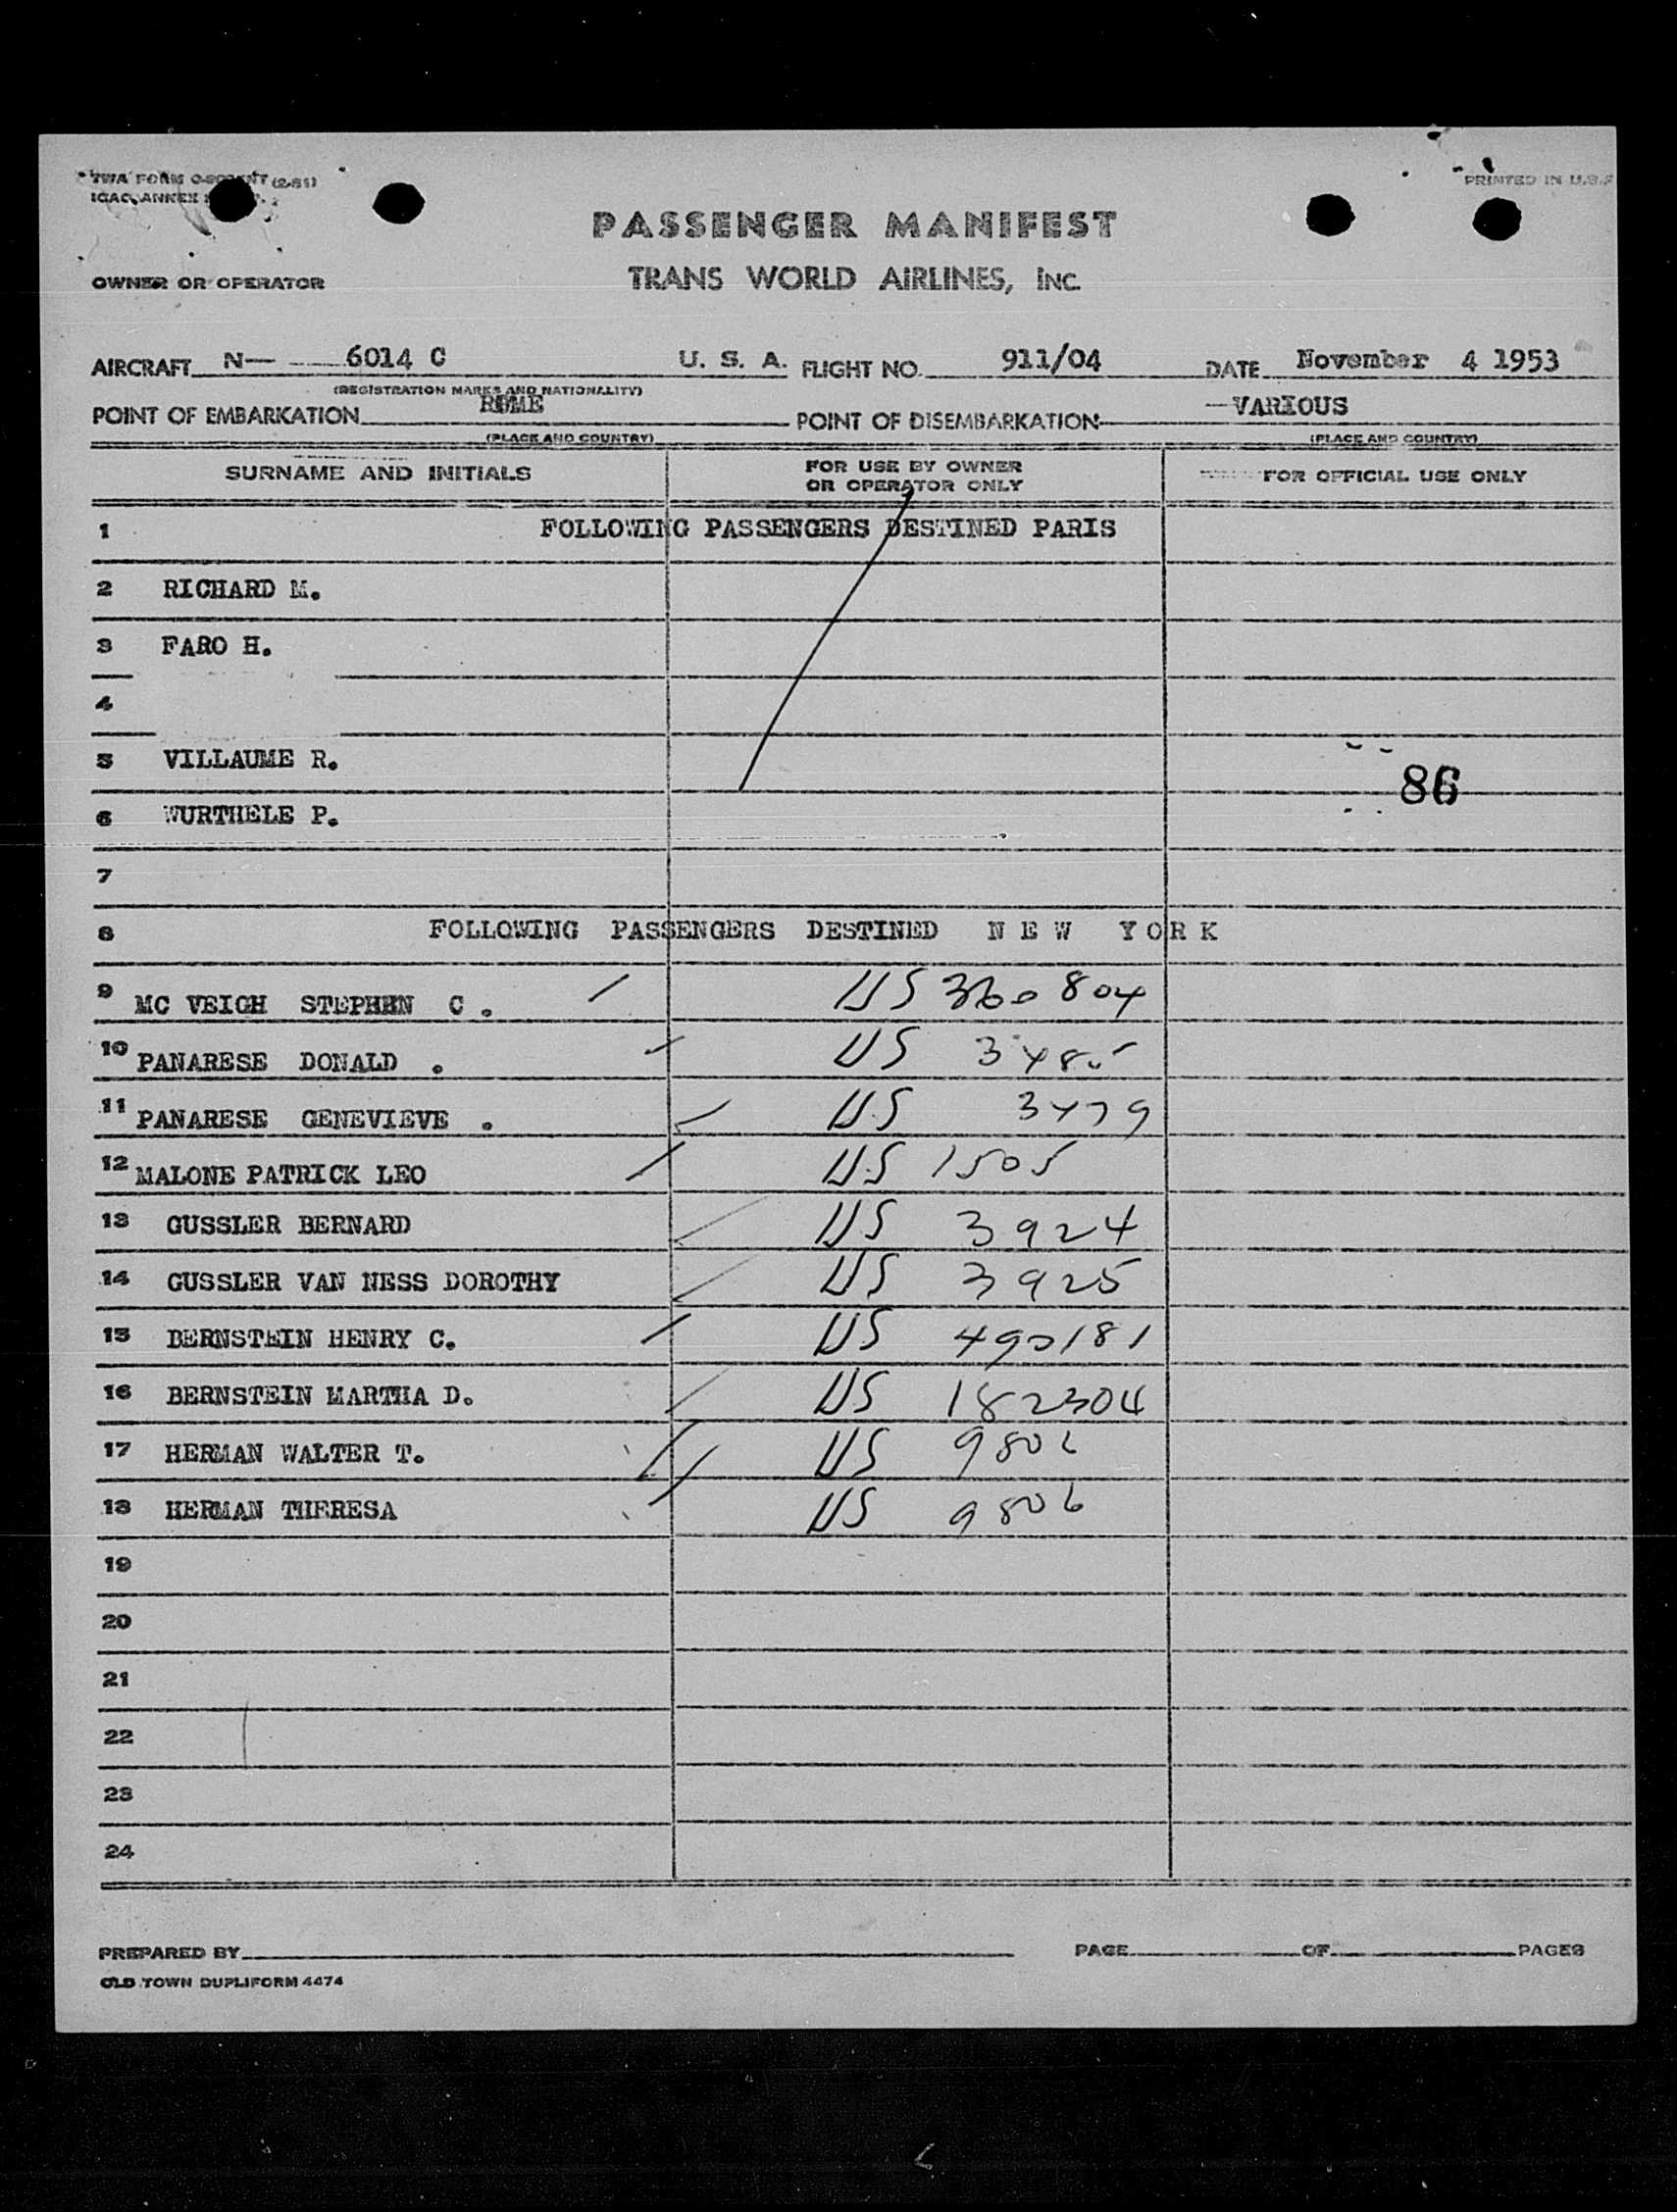 TWA FORM (2-51)
ICAO ANNEX
PRINTED IN U.S.A
PASSENGER MANIFEST
OWNER OR OPERATOR TRANS WORLD AIRLINES, INC.
AIRCRAFT N— 6014 C U. S. A. FLIGHT NO. 911/04 DATE November 4 1953
(REGISTRATION MARKS AND NATIONALITY)
POINT OF EMBARKATION ROME POINT OF DISEMBARKATION VARIOUS
(PLACE AND COUNTRY) (PLACE AND COUNTRY)
SURNAME AND INITIALS FOR USE BY OWNER OR OPERATOR ONLY FOR OFFICIAL USE ONLY
1 FOLLOWING PASSENGERS DESTINED PARIS
2 RICHARD M.
3 FARO H.
4
5 VILLAUME R.
86
6 WURTHELE P.
7
8 FOLLOWING PASSENGERS DESTINED N E W Y O R K
9 MC VEIGH STEPHEN C . US 360804
10 PANARESE DONALD . US
11 PANARESE GENEVIEVE . US 3479
12 MALONE PATRICK LEO US 1505
13 GUSSLER BERNARD US 3924
14 GUSSLER VAN NESS DOROTHY US 3925
15 BERNSTEIN HENRY C. US 490181
16 BERNSTEIN MARTHA D. US 182304
17 HERMAN WALTER T. US 9806
18 HERMAN THERESA US 9806
19
20
21
22
23
24
PREPARED BY PAGE OF PAGES
OLD TOWN DUPLIFORM 4474